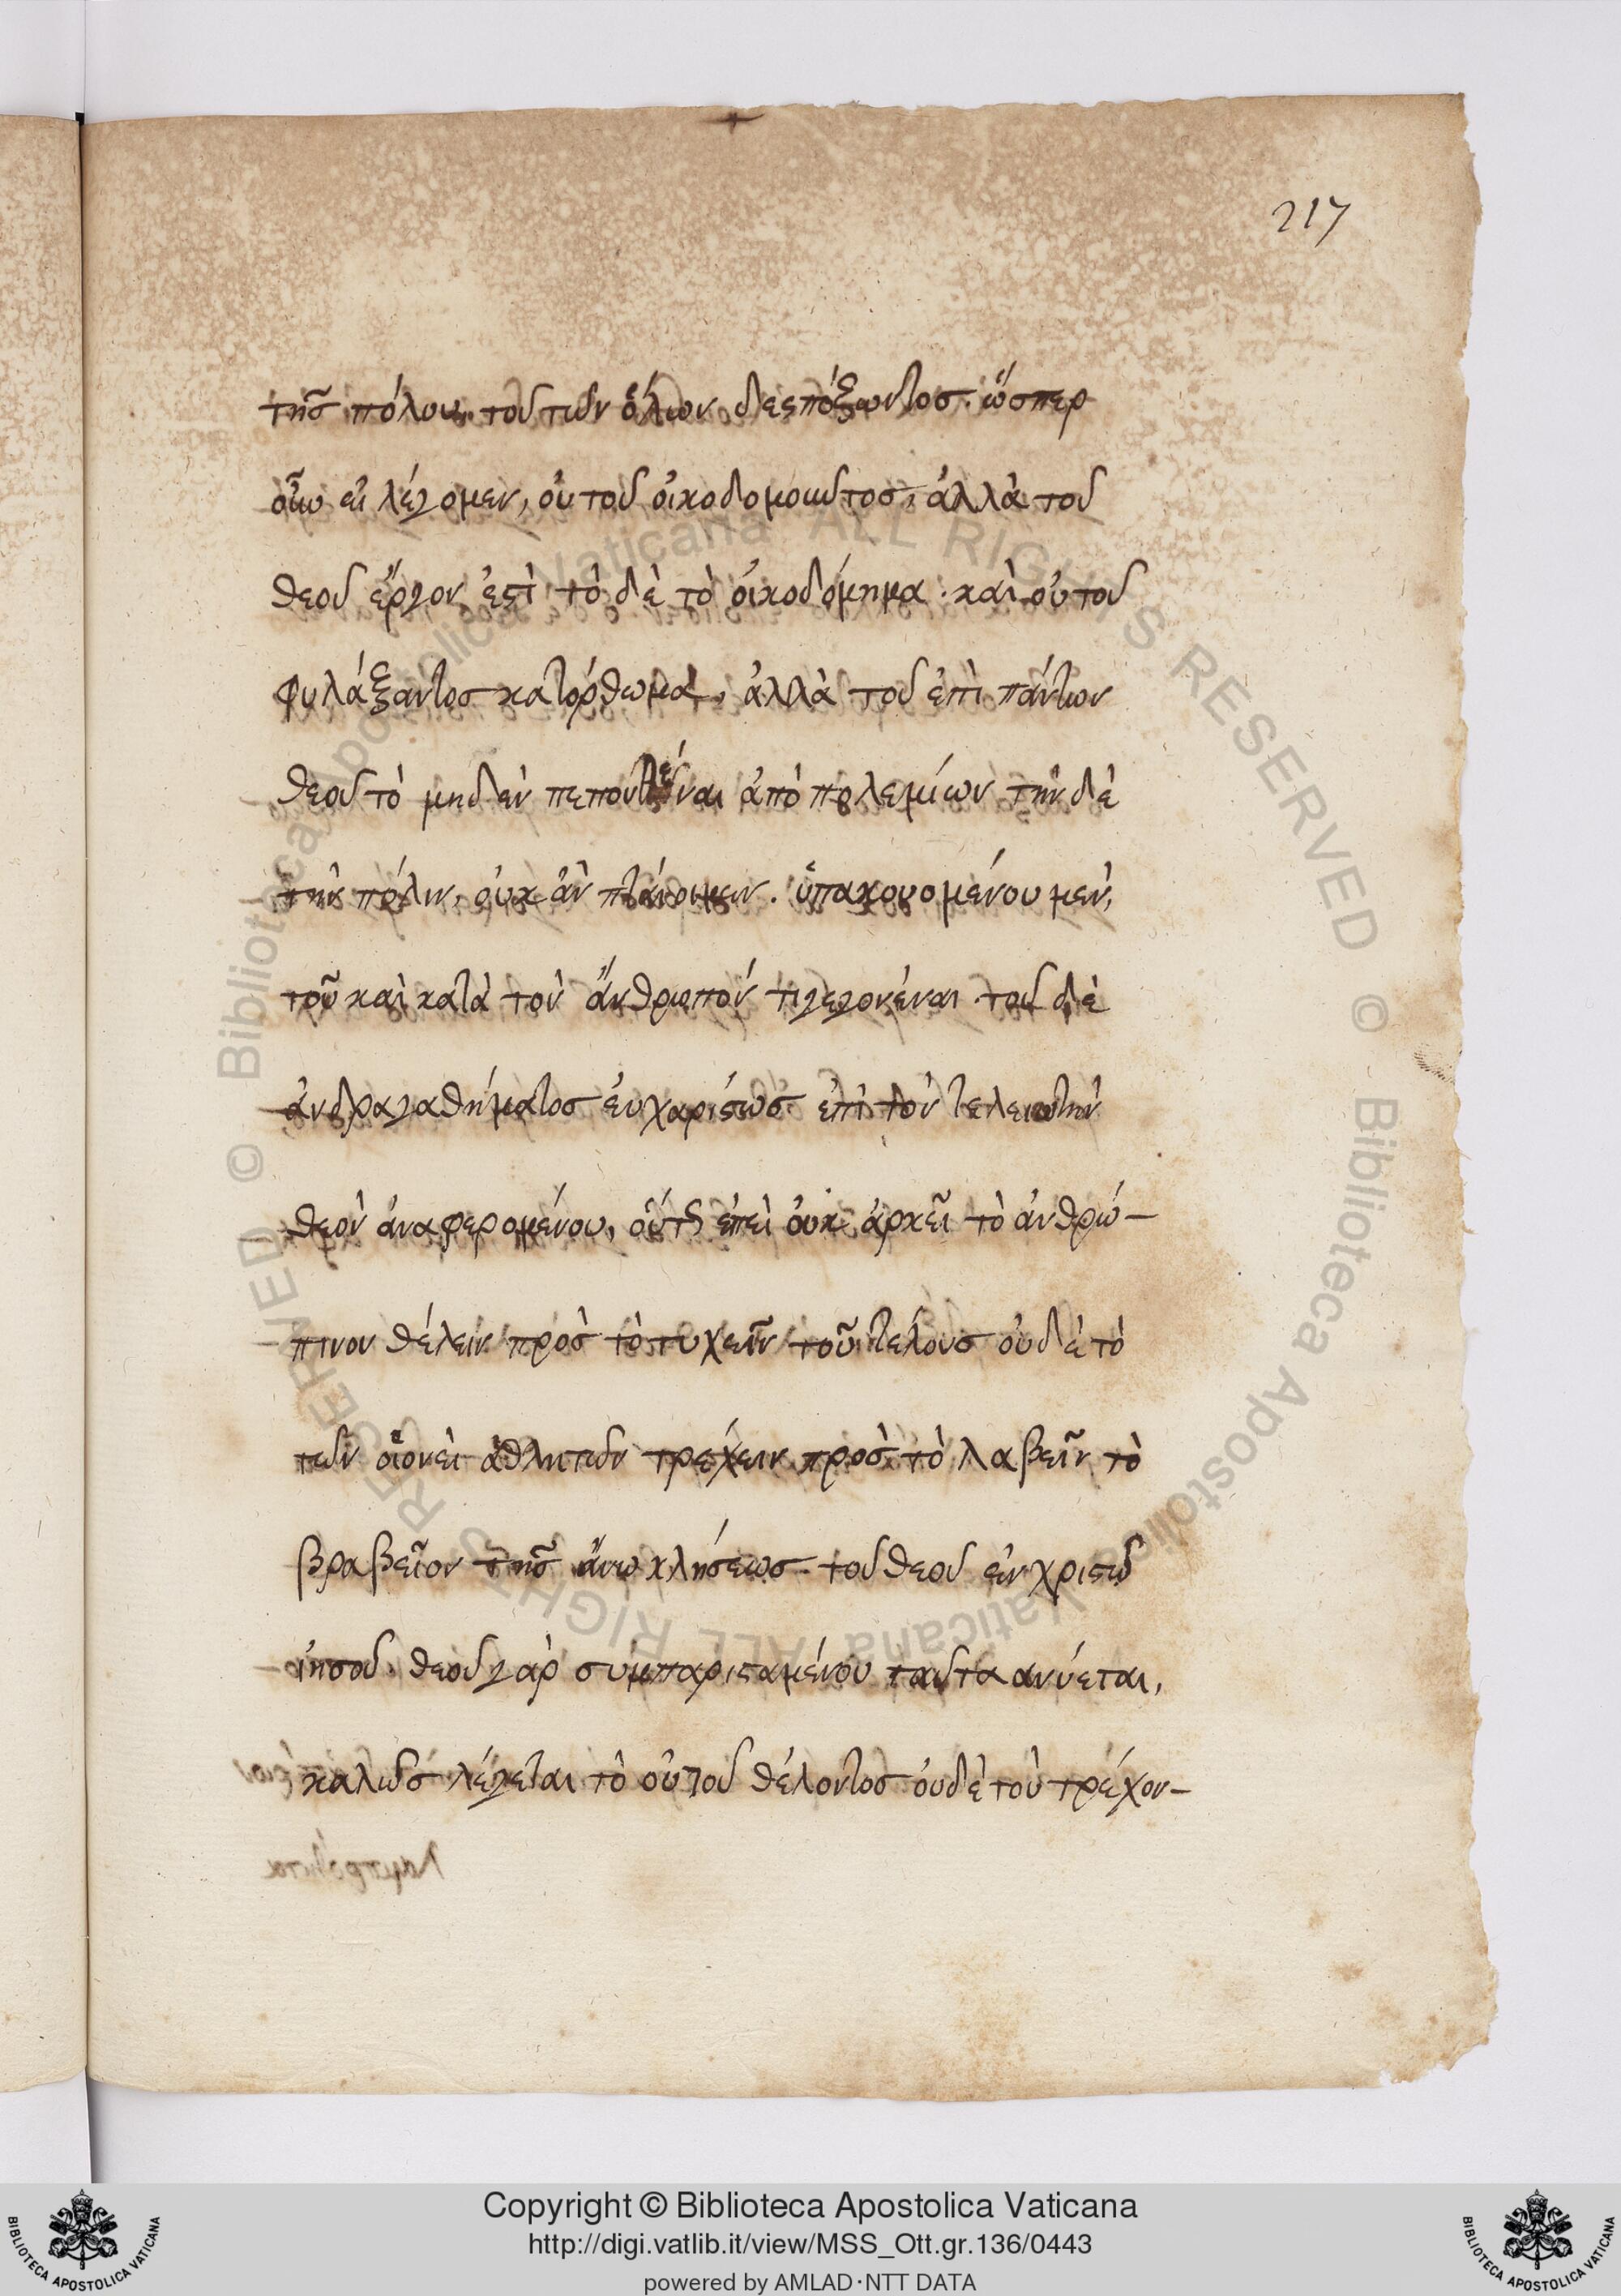 217
τῆς πόλεως τοῦ τῶν ὅλων δεσπόζοντος. ὥσπερ
οὖν εἰ λέγομεν, οὐ τοῦ οἰκοδομοῦντος, ἀλλὰ τοῦ
θεοῦ ἔργον ἐστὶ τὸ δὲ τὸ οἰκοδόμημα. καὶ οὐ τοῦ
φυλάξαντος κατόρθωμα, ἀλλὰ τοῦ ἐπὶ πάντων
θεοῦ τὸ μηδὲν πεπονθέναι ἀπὸ πολεμίων τήνδε
τὴν πόλιν, οὐκ ἂν πταίοιμεν. ὑπακουομένου μὲν,
τοῦ καὶ κατὰ τὸν ἄνθρωπόν τι γεγονέναι. τοῦ δὲ
ἀνδραγαθήματος εὐχαρίστως ἐπὶ τὸν τελειωτὴν
θεὸν ἀναφερομένου, οὕτως ἐπεὶ οὐκ ἀρκεῖ τὸ ἀνθρώ-
πινον θέλειν πρὸς τὸ τυχεῖν τοῦ τέλους οὐδὲ τὸ
τῶν οἱονεὶ ἀθλητῶν τρέχειν πρὸς τὸ λαβεῖν τὸ
βραβεῖον τῆς ἄνω κλήσεως τοῦ θεοῦ ἐν χριστῷ
ἰησοῦ. θεοῦ γὰρ συμπαρισταμένου ταῦτα ανύεται,
καλῶς λέγεται τὸ οὐ τοῦ θέλοντος οὐδὲ τοῦ τρέχον-
Copyright © Biblioteca Apostolica Vaticana
http://digi.vatlib.it/view/MSS_Ott.gr.136/0443
powered by AMLAD·NTT DATA
BIBLIOTECA APOSTOLICA VATICANA
BIBLIOTECA APOSTOLICA VATICANA
© Biblioteca Apostolica Vaticana ALL RIGHTS RESERVED © Biblioteca Apostolica Vaticana ALL RIGHTS RESERVED